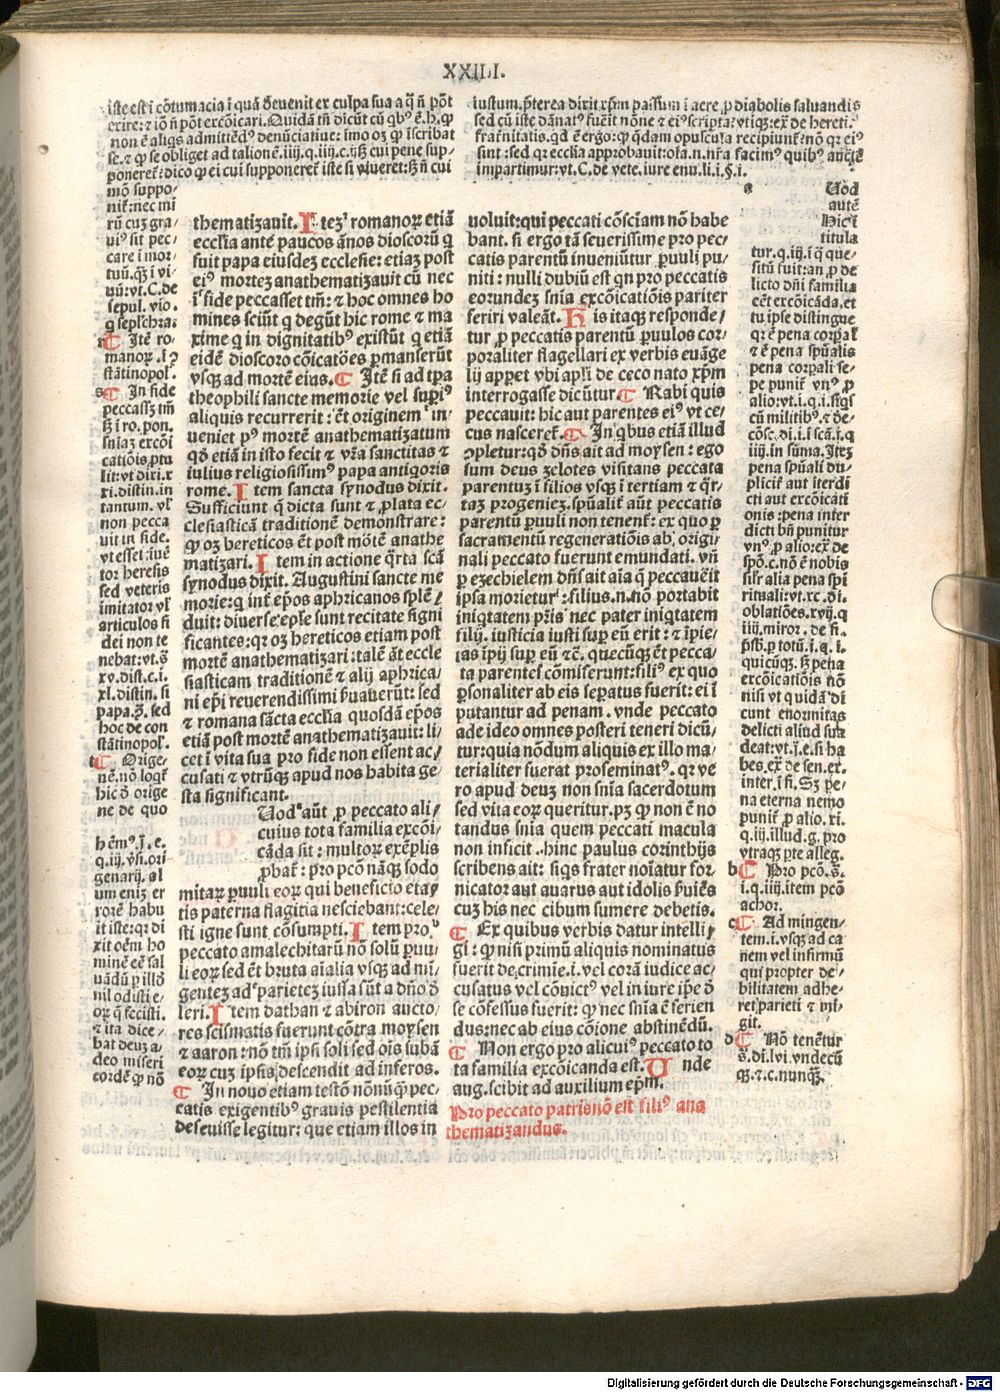 XXIIII.
iste est ī cōtumacia ī quā deuenit ex culpa sua a q̄ ñ pōt
exire: ⁊ iō ñ pōt excōicari. Quidā tñ dicūt cū qbꝰ ē. h. ꝙ
non ē aliqs admittēdꝰ denūciatiue: imo oꝫ ꝙ īscribat
se. ⁊ ꝙ se obliget ad talionē. iiij. q. iiij. c.
poneret̄: dico ꝙ ei cui supponeret̄ iste si viueret:
mō suppo/
nit̄: nec mi
rū cuꝫ gra/
uiꝰ sit pec/
care ī mor/
tuū. qꝫ ī vi/
uū: vt. C. de
sepul. vio.
q sepulchra:
¶ Itē ro/
manoꝝ. i.
stātinopol.
¶ In fide
peccassꝫ tm̄
ro. pon.
sniaꝫ excōi
catiōis ptu
lit: vt di. xx
xi. distin. in
tantum. vl̄
non pecca
uit in fide.
vt esset iuē
tor heresis
sed veteris
imitator vl̄
articulos fi
dei non te
nebat: vt. s̄
xv. dist. c. i.
xl. distin. si
papa. sed
hoc de con
stātinopol.
¶ Orige-
nē. nō loqt̄
hic d̄ orige
ne de quo
q. iij. vn̄. ori
genarij. al
um eniꝫ er
rorē habu
it iste: qr di
xit oēm ho
minē eē sal
uādū ꝓ illd̄
nil odisti e/
oꝝ q̄ fecisti.
⁊ ita dice/
bat deuꝫ a/
deo miseri
cordē ꝙ nō
thematizauit. Iteꝫ romanoꝝ etiā
ecclīa ante paucos ānos dioscorū q
fuit papa eiusdeꝫ ecclesie: etiaꝫ post
eiꝰ morteꝫ anathematizauit cū nec
ī fide peccasset tm̄: ⁊ hoc omnes ho
mines sciūt q degūt hic rome ⁊ ma
xime q in dignitatibꝰ existūt q etiā
eidē dioscoro cōicatōes ꝑmanserūt
vsqꝫ ad mortē eius. ¶ Itē si ad tꝑa
theophili sancte memorie vel supiꝰ
aliquis recurrerit: ēt originem in/
ueniet pꝰ mortē anathematizatum
qd̄ etiā in isto fecit ⁊ vr̄a sanctitas ⁊
iulius religiosissimꝰ papa antiqoris
rome. Item sancta synodus dixit.
Sufficiunt q̄ dicta sunt ⁊ ꝓlata ec/
clesiasticā traditionē demonstrare:
ꝙ oꝫ hereticos ēt post mōtē anathe
matizari. Item in actione q̄rta scā
synodus dixit. Augustini sancte me
morie: q int̄ epōs aphricanos splē/
duit: diuerse eplē sunt recitate signi
ficantes: qr oꝫ hereticos etiam post
mortē anathematizari: talē āt eccle
siasticam traditionē ⁊ alij aphrica/
ni epī reuerendissimi ꝓuauerūt: sed
⁊ romana sācta ecclīa quosdā epōs
etiā post mortē anathematizauit: li/
cet ī vita sua pro fide non essent ac/
cusati ⁊ vtrūqꝫ apud nos habita ge/
sta significant.
Uod aūt ꝓ peccato ali/
cuius tota familia excōi/
cāda sit: multoꝝ exēplis
ꝓbat̄: pro pcō nāqꝫ sodo
mitaꝝ puuli eoꝝ qui beneficio eta/
tis paterna flagitia nesciebant: cele/
sti igne sunt cōsumpti. Item pro
peccato amalechitarū nō solū puu/
li eoꝝ sed ēt bruta aialia vsqꝫ ad mī/
genteꝫ ad parieteꝫ iussa sūt a dn̄o d̄
leri. Item dathan ⁊ abiron aucto/
res scismatis fuerunt cōtra moysen
⁊ aaron: nō tm̄ ipsi soli sed oīs subā
eoꝝ cuꝫ ipsis descendit ad inferos.
¶ In nouo etiam testō nōnūqꝫ pec/
catis exigentibꝰ grauis pestilentia
deseuisse legitur: que etiam illos in
iustum. p̄terea dixit xpm passum ī aere ꝓ diabolis saluandis
sed cū iste dānatꝰ fuerit nōne ⁊ eiꝰ scripta: vtiqꝫ: ex̄ de hereti.
frat̄nitatis. qd ē ergo: ꝙ q̄dam opuscula recipiunt̄: nō qr ei
sint: sed qr ecclīa approbauit: oīa. n. nr̄a facimꝰ quibꝰ auctē
impartimur: vt. C. de vete. iure enu. li. i. §. i.
uoluit: qui peccati cōsciam nō habe
bant. si ergo tā seuerissime pro pec/
catis parentū inueniūtur puuli pu/
niti: nulli dubiū est qn pro peccatis
eorundeꝫ snīa excōicatiōis pariter
feriri valeāt. His itaqꝫ responde/
tur ꝓ peccatis parentū puulos cor/
poraliter flagellari ex verbis euāge
lij apꝑet vbi apl̄i de ceco nato xp̄m
interrogasse dicūtur. ¶ Rabi quis
peccauit: hic aut parentes eiꝰ vt ce/
cus nasceret̄. ¶ In qbus etiā illud
ꝯpletur: qd̄ dn̄s ait ad moysen: ego
sum deus zelotes visitans peccata
parentuꝫ ī filios vsqꝫ ī tertiam ⁊ q̄r/
taꝫ progenieꝫ. spūalit̄ aūt peccatis
parentū puuli non tenent̄: ex quo ꝑ
sacramentū regenerationis ab origi
nali peccato fuerunt emundati. vn̄
ꝑ eꝫechielem dn̄s ait aīa q̄ peccauerit
ipsa morietur: filius. n. nō portabit
iniqtatem pris nec pater iniqtatem
filij. iusticia iusti suꝑ eū erit: ⁊ īpie/
tas īpij suꝑ eū ⁊ c̄. quecūqꝫ ēt pecca/
ta parentes cōmiserunt: filiꝰ ex quo
ꝑsonaliter ab eis seꝑatus fuerit: ei ī
putantur ad penam. vnde peccato
ade ideo omnes posteri teneri dicū/
tur: quia nōdum aliquis ex illo ma/
terialiter fuerat proseminatꝰ. qr ve
ro apud deuꝫ non snīa sacerdotum
sed vita eoꝝ queritur. pꝫ ꝙ non ē no
tandus snīa quem peccati macula
non inficit. hinc paulus corinthijs
scribens ait: siqs frater noīatur for/
nicator aut auarus aut idolis ẜuiēs
cuꝫ his nec cibum sumere debetis.
¶ Ex quibus verbis datur intelli/
gi: ꝙ nisi primū aliquis nominatus
fuerit de crimīe. i. vel corā iudice ac/
cusatus vel cōuictꝰ vel in iure ipē d̄
se cōfessus fuerit: ꝙ nec snīa ē ferien
dus: nec ab eius cōione abstinēdū.
¶ Non ergo pro alicuiꝰ peccato to
ta familia excōicanda est. Unde
aug. scibit ad auxilium epm̄.
Pro peccato patris nō est filiꝰ ana
thematizandus.
a Uod
autē
Hic ī
titula
tur. q. iij. ī q̄ que/
situ fuit: an ꝓ de
licto dn̄i familia
eēt excōicāda. et
tu ipse distingue
qr ē pena corꝑal̄
⁊ ē pena spūalis
pena corꝑali se/
pe punit̄ vnꝰ ꝓ
alio: vt. i. q. i.
cū militibꝰ. ⁊ de/
cōsc. di. i. ī scā. i. q
iiij. in sūma. Iteꝫ
pena spūali du/
plicit̄ aut īterdi
cti aut excōicati
onis: pena inter
dicti bn̄ punitur
vnꝰ ꝓ alio: ex̄ de
spō. c. nō ē nobis
sil̄r alia pena spi
rituali: vt. xc. di.
oblatiōes. xvij. q
iiij. miror. de fi.
ꝑ totū. i. q. i.
quicūqꝫ. sꝫ pena
excōicatiōis nō
nisi vt quidā di
cunt enormitas
delicti aliud sua
deat: vt. ī. e. si ha
bes. ex̄ de sen. ex.
inter. ī fi. Sꝫ pe/
na eterna nemo
punit̄ ꝓ alio. xi.
q. iij. illud. g. pro
vtraqꝫ pte alleg.
b ¶ Pro pcō. s̄.
i. q. iiij. item pcō
achor.
c ¶ Ad mingen-
tem. i. vsqꝫ ad ca
nem vel infirmū
qui propter de/
bilitatem adhe/
ret parieti ⁊ mī/
git.
d ¶ Nō tenētur
s̄. di. lvi. vndecū
qꝫ. ⁊ c. nunqꝫ.
Digitalisierung gefördert durch die Deutsche Forschungsgemeinschaft - DFG